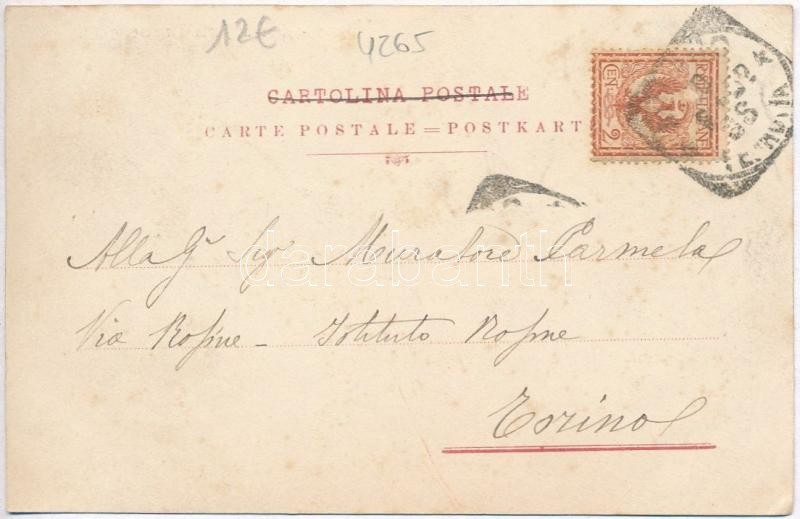 12€
4265
CARTOLINA POSTALE
CARTE POSTALE = POSTKART
CEN. 2
darabanth
Alla G. Sig. Muratore Carmela
Via Rosine - Istituto Rosine
Torino